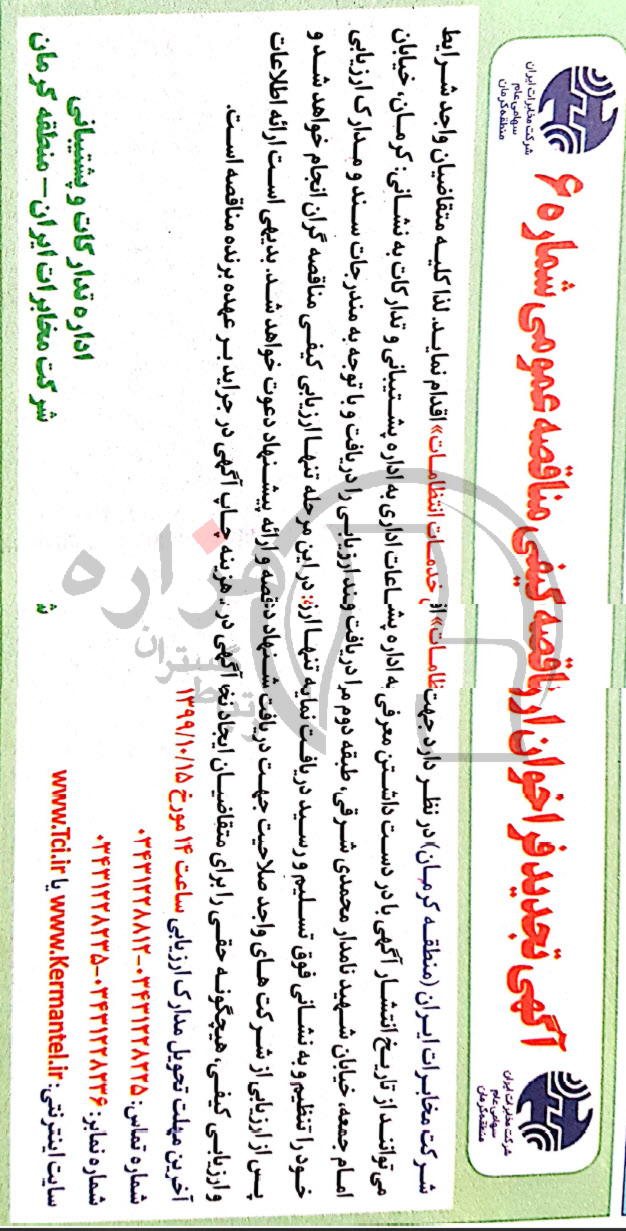 آگهی تجدید فراخوان ارز ناقصه کیفی مناقصه عمومی شماره ۶
شرکت مخابرات ایران
سهامی عام
منطقه کرمان
شرکت مخابرات ایران
سهامی عام
منطقه کرمان
شرکت مخابرات ایران (منطقه کرمان) در نظر دارد جهت ظامات» خدمات انتظامات» اقدام نماید. لذا کلیه متقاضیان واجد شرایط
می‌توانند از تاریخ انتشار آگهی با در دست داشتن معرفی به اداره پشـاعات اداری به اداره پشتیبانی و تدارکات به نشانی: کرمان، خیابان
امام جمعه، خیابان شهید نامدار محمدی شرقی، طبقه دوم مرا دریافت وند ارزیابی را دریافت و با توجه به مندرجات سند و مدارک ارزیابی
خود را تنظیم و به نشانی فوق تسلیم و رسید دریافت نمایه تنها ارز: در این مرحله تنها ارزیابی کیفی مناقصه گران انجام خواهد شد و
پس از ارزیابی از شرکت های واجد صلاحیت جهت دریافت شنهاد دقصه و ارائه پیشنهاد دعوت خواهد شد. بدیهی است ارائه اطلاعات
و ارزیابی کیفی، هیچگونه حقی را برای متقاضیان ایجاد نخ آگهی در . هزینه چاپ آگهی در جراید بر عهده برنده مناقصه است.
آخرین مهلت تحویل مدارک ارزیابی ساعت ۱۴ مورخ ۱۳۹۹/۱۰/۱۵
شماره تماس: ۰۳۴۳۱۲۲۸۲۲۵-۰۳۴۳۱۲۲۸۸۱۲
شماره نمابر: ۰۳۴۳۱۲۲۸۲۳۶-۰۳۴۳۱۲۲۸۲۳۵
سایت اینترنتی: www.Kermantel.ir یا www.Tci.ir
اداره تدارکات و پشتیبانی
شرکت مخابرات ایران– منطقه کرمان